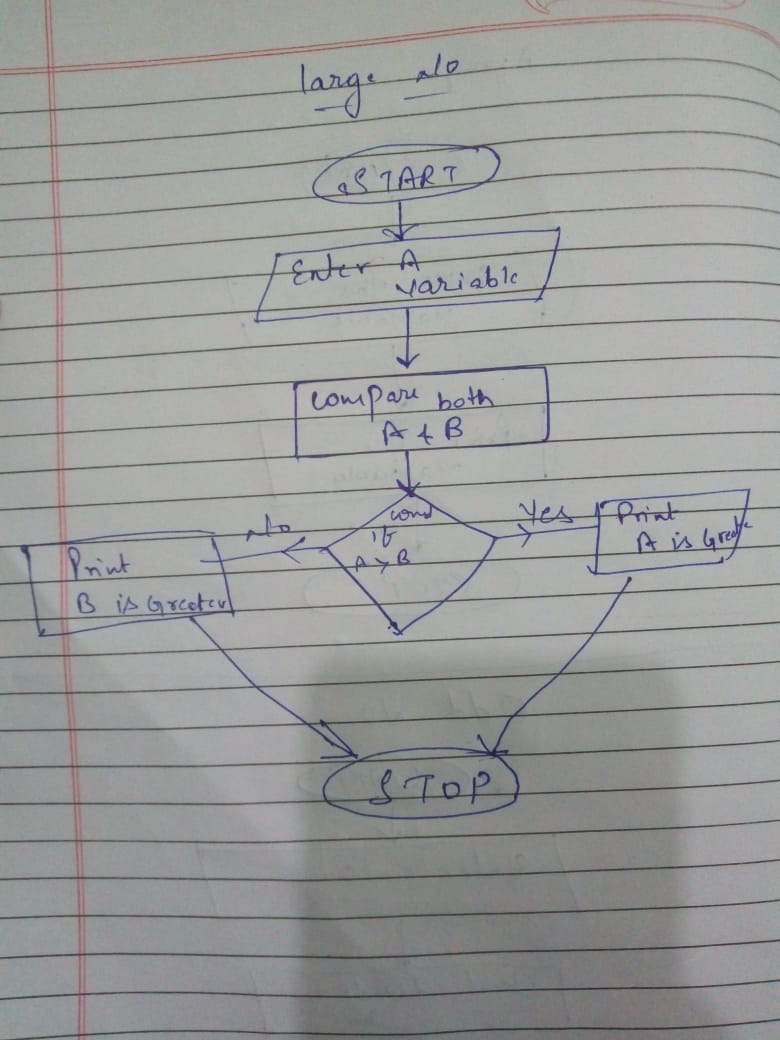 large No
START
Enter A
variable
compare both
A & B
cond
if
A > B
No
Yes
Print
B is Greater
Print
A is Greate
STOP